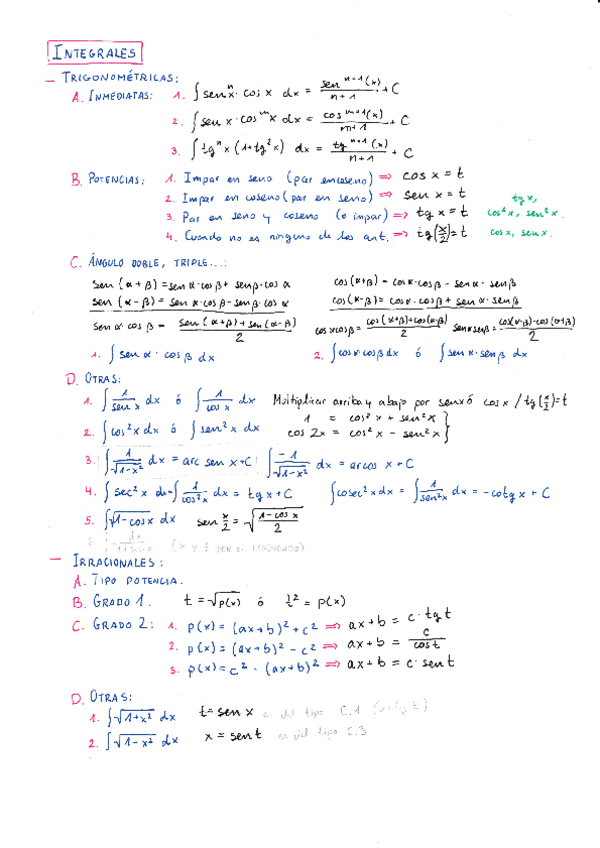 INTEGRALES
— TRIGONOMÉTRICAS:
A. INMEDIATAS: 1. ∫ senⁿx · cos x dx = senⁿ⁺¹(x)/(n+1) + C
2. ∫ sen x · cosᵐ x dx = cosᵐ⁺¹(x)/(m+1) + C
3. ∫ tgⁿ x (1+tg² x) dx = tgⁿ⁺¹(x)/(n+1) + C
B. POTENCIAS: 1. Impar en seno (par en coseno) ⇒ cos x = t
2. Impar en coseno (par en seno) ⇒ sen x = t
3. Par en seno y coseno (o impar) ⇒ tg x = t tg x, cos² x, sen² x.
4. Cuando no es ninguno de los ant. ⇒ tg(x/2) = t cos x, sen x.
C. ÁNGULO DOBLE, TRIPLE...:
sen (α + β) = sen α · cos β + sen β · cos α cos (α+β) = cos α · cos β - sen α · sen β
sen (α - β) = sen α · cos β - sen β · cos α cos (α-β) = cos α · cos β + sen α · sen β
sen α · cos β = (sen (α+β) + sen (α-β))/2 cos α cos β = (cos (α+β) + cos (α-β))/2 sen α sen β = (cos(α-β) - cos (α+β))/2
1. ∫ sen α · cos β dx 2. ∫ cos α · cos β dx ó ∫ sen α · sen β dx
D. OTRAS:
1. ∫ 1/sen x dx ó ∫ 1/cos x dx Multiplicar arriba y abajo por sen x ó cos x / tg(x/2) = t
2. ∫ cos² x dx ó ∫ sen² x dx 1 = cos² x + sen² x }
cos 2x = cos² x - sen² x }
3. ∫ 1/√(1-x²) dx = arc sen x + C ∫ -1/√(1-x²) dx = arcos x + C
4. ∫ sec² x dx = ∫ 1/cos² x dx = tg x + C ∫ cosec² x dx = ∫ 1/sen² x dx = -cotg x + C
5. ∫ √(1-cos x) dx sen x/2 = √((1-cos x)/2)
— IRRACIONALES:
A. TIPO POTENCIA.
B. GRADO 1. t = √p(x) ó t² = p(x)
C. GRADO 2: 1. p(x) = (ax+b)² + c² ⇒ ax + b = c · tg t
2. p(x) = (ax+b)² - c² ⇒ ax + b = c/cos t
3. p(x) = c² - (ax+b)² ⇒ ax + b = c · sen t
D. OTRAS:
1. ∫ √(1+x²) dx t = sen x es del tipo C.1 (x = tg t)
2. ∫ √(1-x²) dx x = sen t es del tipo C.3